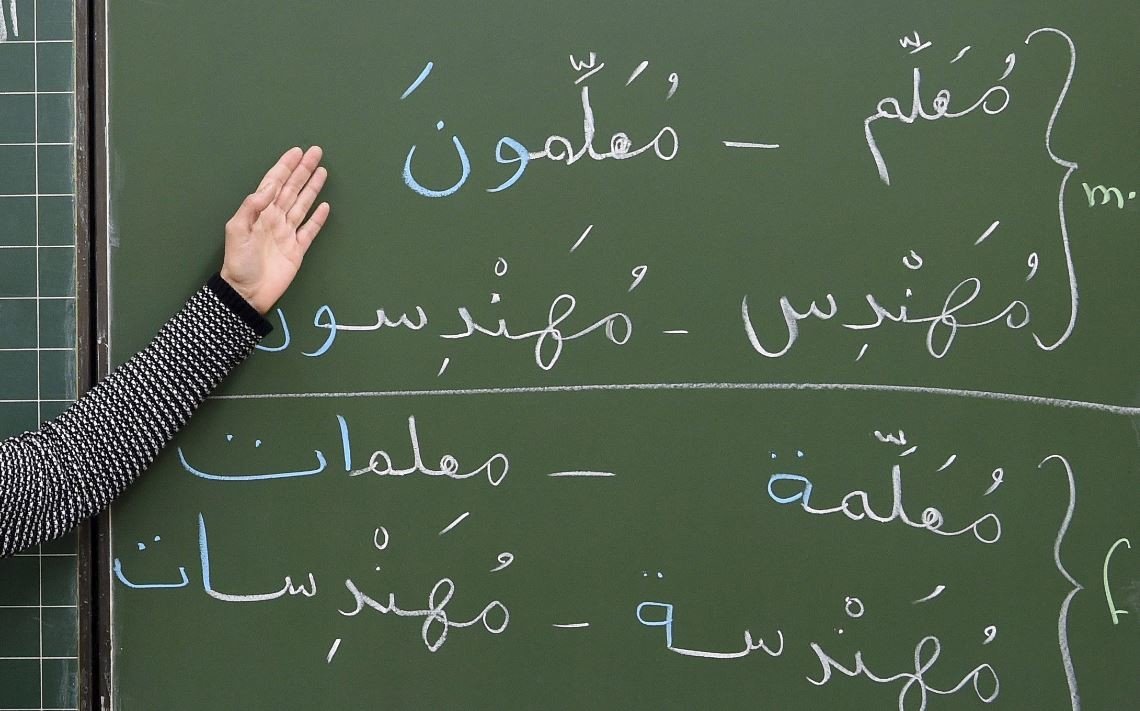 مُعَلِّم – مُعَلِّمونَ
m.
مُهَنْدِس – مُهَنْدِسون
مُعَلِّمة – معلمات
f
مُهَنْدسة – مُهَنْدِسات